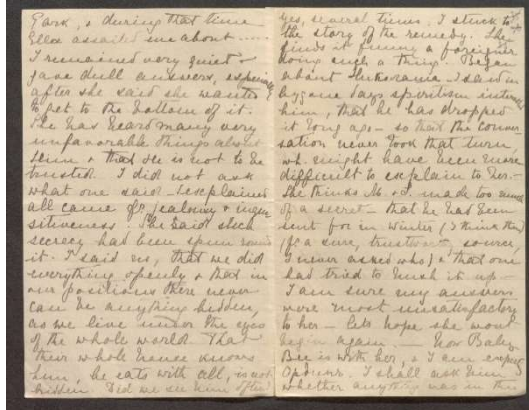 Park, & during that time
Ella assailed me about .....
I remained very quiet &
gave dull answers, especially
after she said she wanted
to get to the bottom of it.
She has heard many very
unfavorable things about
Him & that He is not to be
trusted. I did not ask
what one said - I explained
all came fr. jealousy & inquisitiveness
She said such
secrecy had been spun round
it. I said no, that we did
everything openly & that in
our positions there never
can be anything hidden,
as we live under the eyes
of the whole world. That
their whole house knows
him, he eats with all, is not
hidden. Did we see him often?
yes, several times. I stuck to
the story of the remedy. She
finds it funny a foreigner
doing such a thing. Began
about I said in
bygone days spiritism interested
him, that he has dropped
it long ago - so that the conver
sation never took that turn,
wh. might have been more
difficult to explain to her. -
She thinks M. & I made too much
of a secret - that he has been
sent for in winter (I think then)
(fr. a sure, trustworthy source,
I never asked who) & that one
had tried to hush it up -
I am sure my answers
were most unsatisfactory
to her - lets hope she wont
begin again. - Now Baby
Bee is with her, & I am
I shall ask him
whether anything was in the